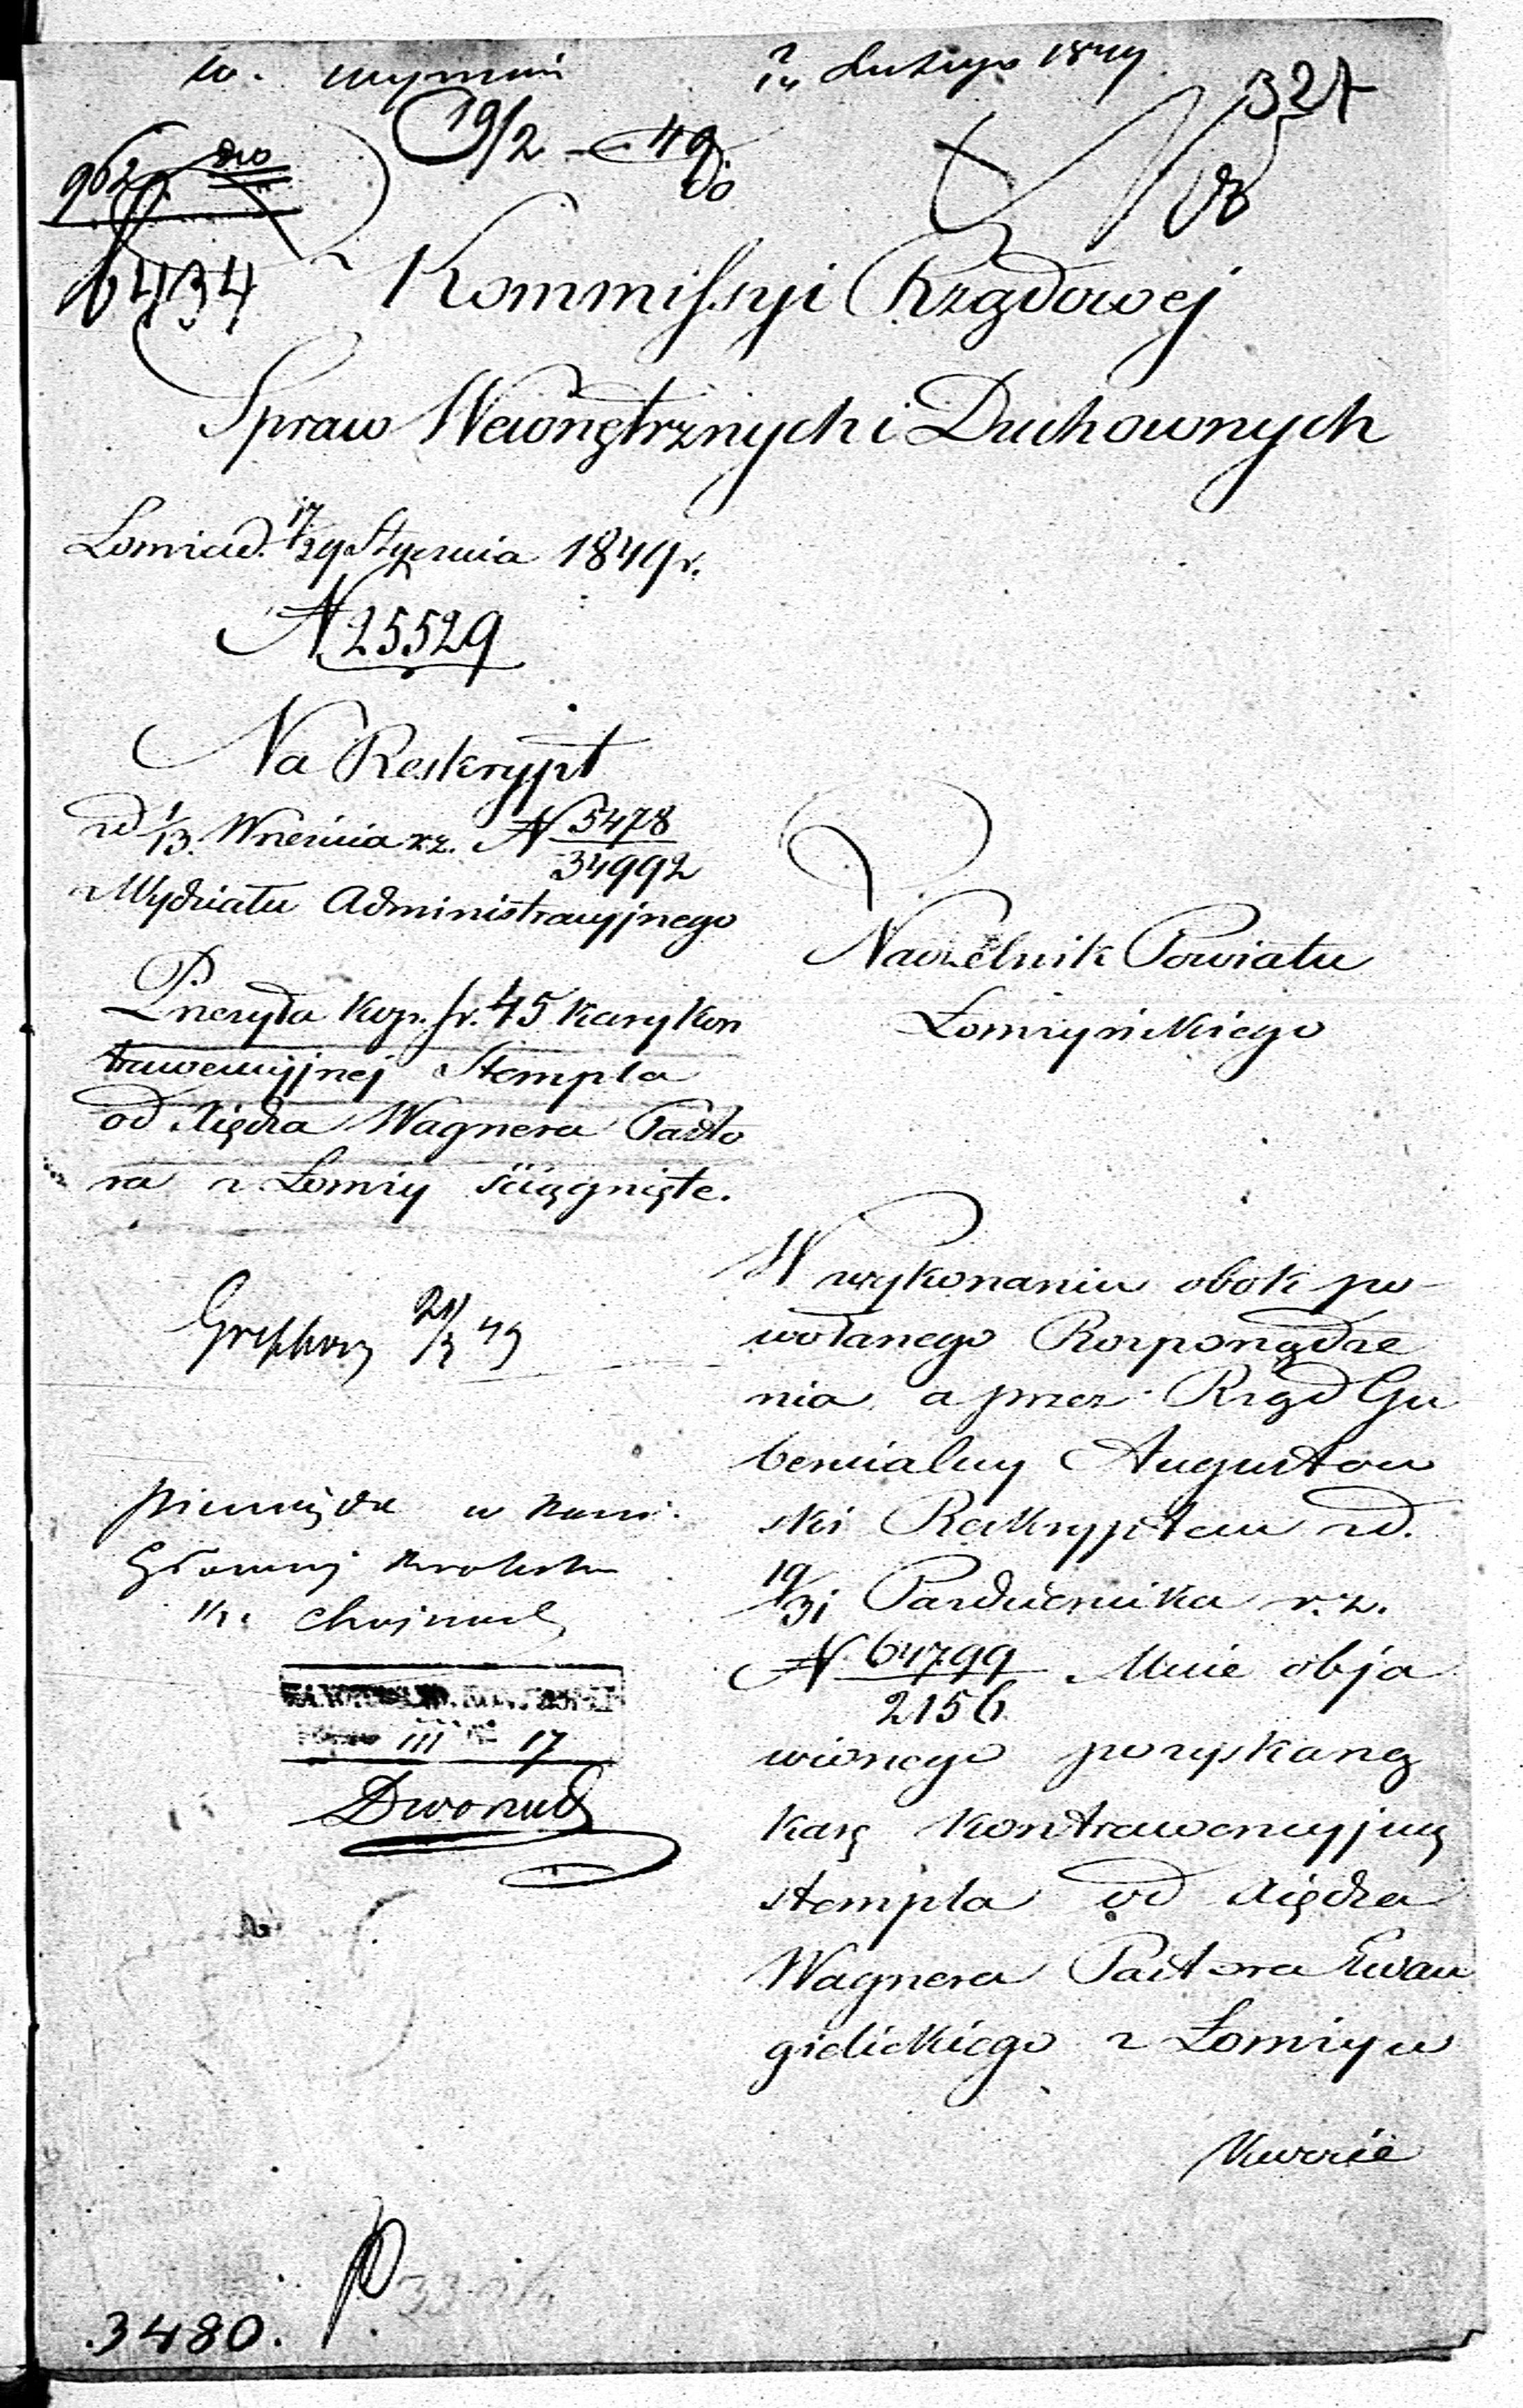 2/14 Lutego 1849
327
19/2 - 49
962
6434
do
Kommissyi Rządowej
Spraw Wewnętrznych i Duchownych
Łomża d. 17/29 Stycznia 1849 r.
N 25529
Na Reskrypt
z d 1/13. Września r.z. N 5478/34992
z Wydziału Administracyjnego
Przesyła kop. sr. 45 kary kon
trawencyjnej Stempla
od Xiędza Wagnera Pasto
ra z Łomży ściągnięte.
Naczelnik Powiatu
Łomżyńskiego
21/3 49
pieniądze w Kassie
Głównej
III 17
W wykonaniu obok po-
wołanego Rozporządze
nia, a przez Rząd Gu
bernialny Augustow
ski Reskryptem z d.
19/31 Pazdziernika r.z.
N 64799/2156 Mnie obja
wionego pozyskaną
karę kontrawencyjną
stempla od Xiędza
Wagnera Pastora Ewan
gielickiego z Łomży w
kwocie
3480.